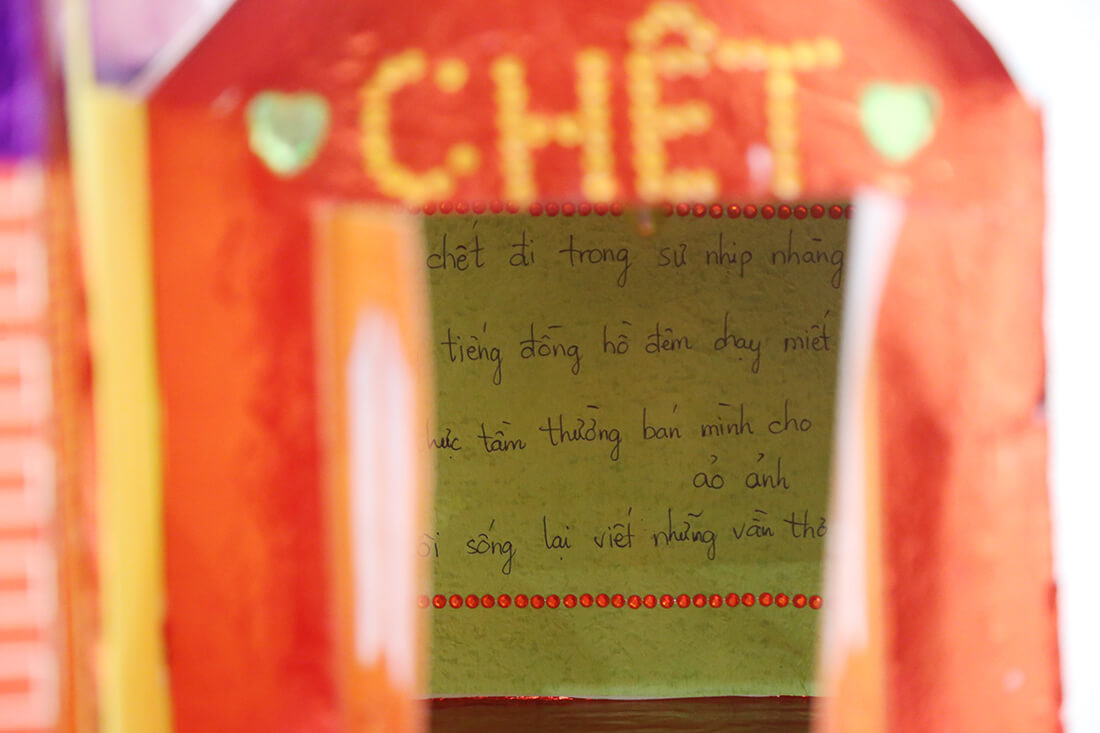 CHẾT
chết đi trong sự nhịp nhàng
tiếng đồng hồ đêm chạy miết
tầm thường bán mình cho
ảo ảnh
sống lại viết những vần thơ